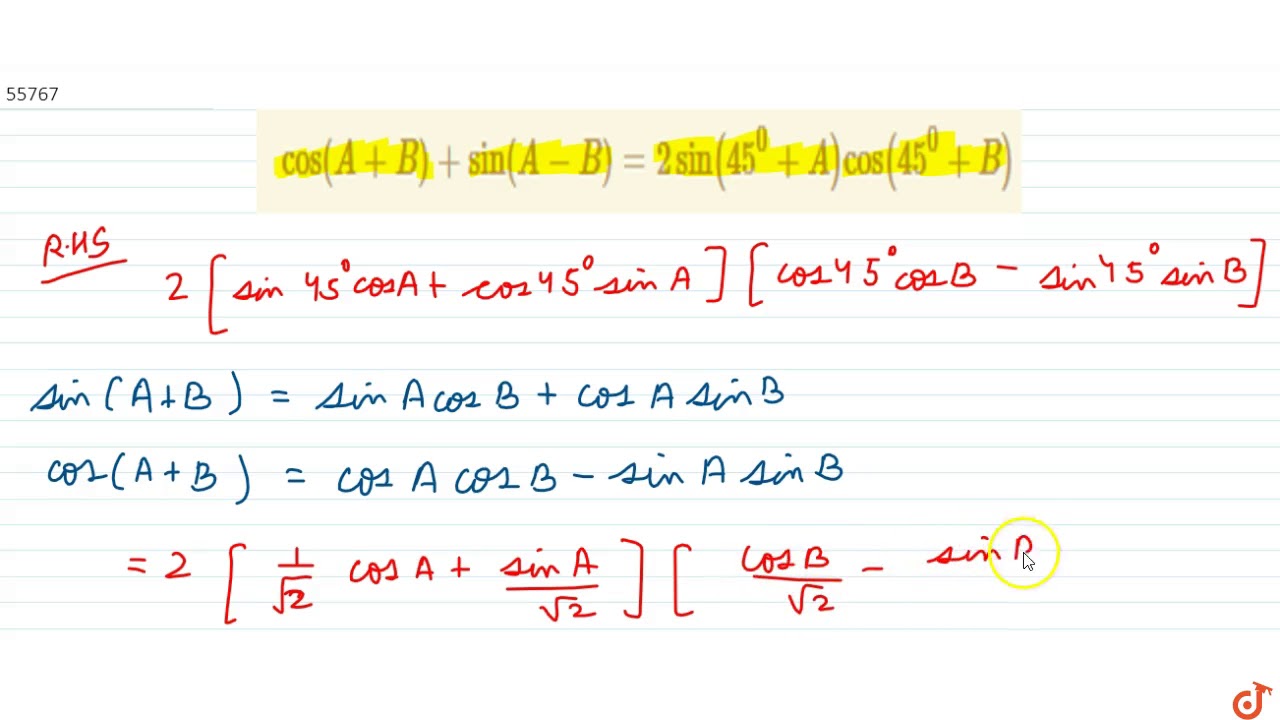 55767
cos(A + B) + sin(A − B) = 2 sin(45⁰ + A) cos(45⁰ + B)
R.HS
2 [ sin 45° cos A + cos 45° sin A ] [ cos 45° cos B − sin 45° sin B ]
sin (A+B) = sin A cos B + cos A sin B
cos (A+B) = cos A cos B − sin A sin B
= 2 [ 1/√2 cos A + sin A/√2 ] [ cos B/√2 − sin B